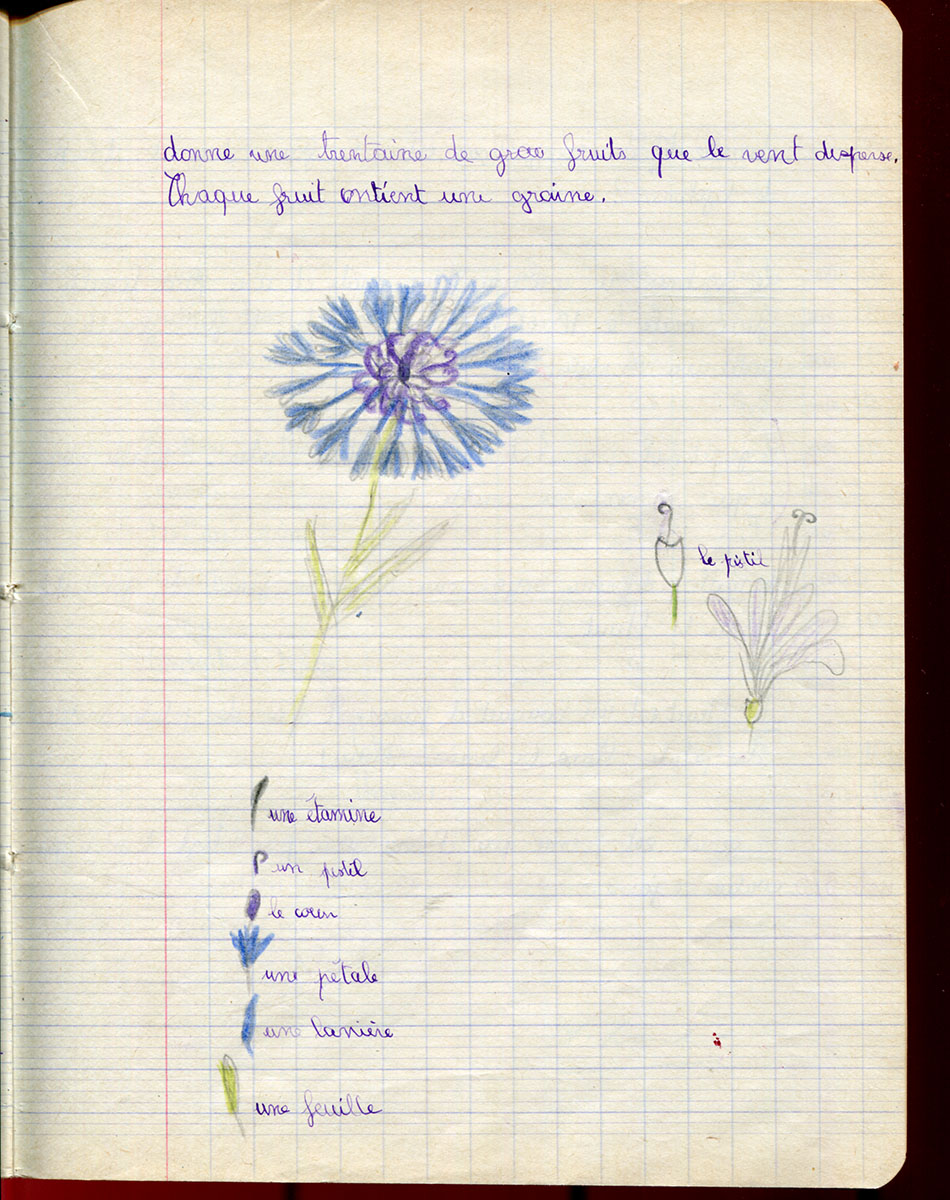 donne une trentaine de gros fruits que le vent disperse.
Chaque fruit contient une graine.
le pistil
une étamine
un pistil
le cœur
une pétale
une lanière
une feuille